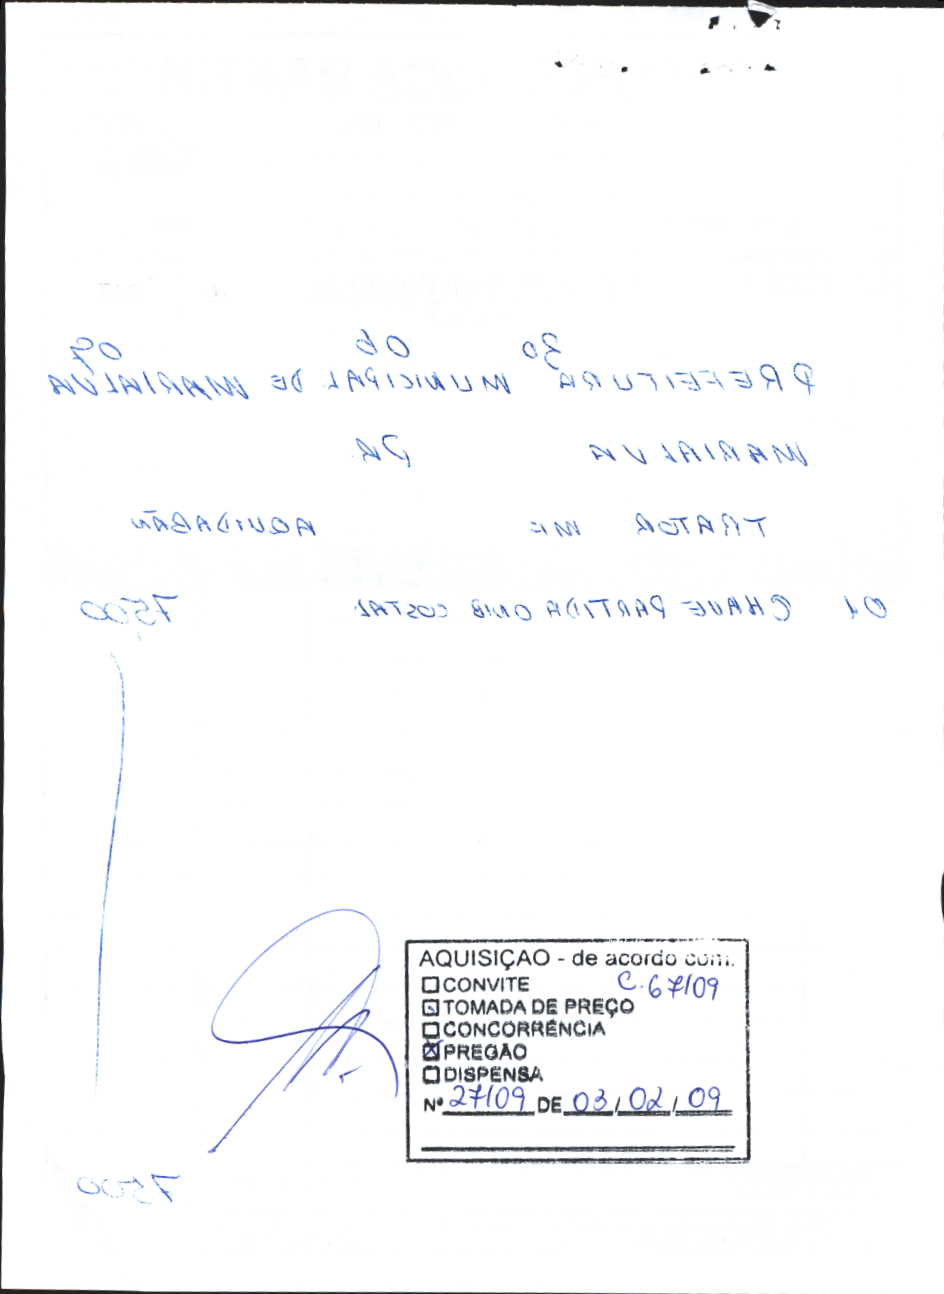 30 06 09
PREFEITURA MUNICIPAL DE MARIALVA
MARIALVA PR
TRATOR MF AQUIDABÃN
01 CHAVE PARTIDA ONIB COSTAL 7500
AQUISIÇAO - de acordo com.
CONVITE C.67/09
TOMADA DE PREÇO
CONCORRÊNCIA
PREGÃO
DISPENSA
Nº 27/09 DE 03/02/09
7500